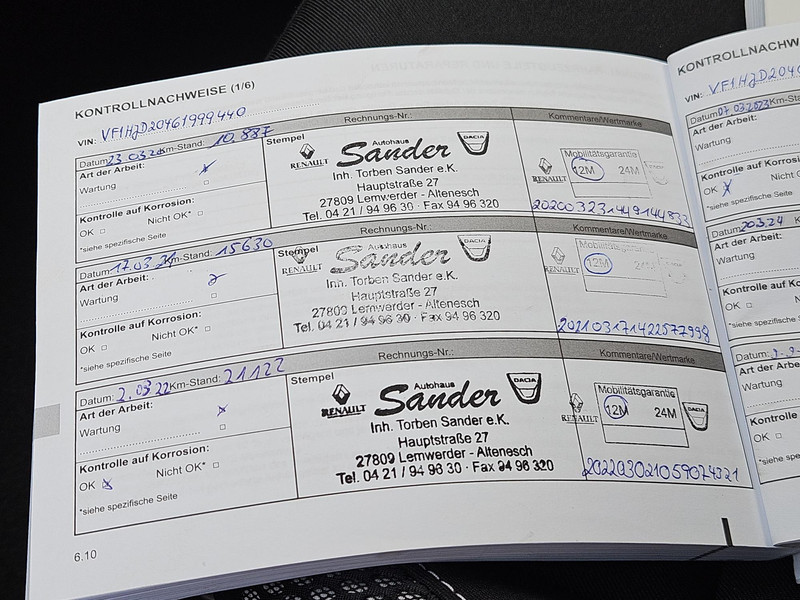 KONTROLLNACHWEISE (1/6)
VIN: VF1HJD20461999440
Datum: 23.03.20 Km-Stand: 10.887
Rechnungs-Nr.:
Kommentare/Wertmarke
Art der Arbeit:
Wartung
Kontrolle auf Korrosion:
OK □ Nicht OK* □
*siehe spezifische Seite
Stempel
RENAULT
Autohaus
Sander
DACIA
Inh. Torben Sander e.K.
Hauptstraße 27
27809 Lemwerder - Altenesch
Tel. 04 21 / 94 96 30 · Fax 94 96 320
RENAULT
Mobilitätsgarantie
12M 24M
20200323144914483
Datum: 17.03.21 Km-Stand: 15630
Rechnungs-Nr.:
Kommentare/Wertmarke
Art der Arbeit:
Wartung
Kontrolle auf Korrosion:
OK □ Nicht OK* □
*siehe spezifische Seite
Stempel
RENAULT
Autohaus
Sander
DACIA
Inh. Torben Sander e.K.
Hauptstraße 27
27809 Lemwerder - Altenesch
Tel. 04 21 / 94 96 30 · Fax 94 96 320
RENAULT
Mobilitätsgarantie
12M 24M
20210317142257798
Datum: 2.03.22 Km-Stand: 21122
Rechnungs-Nr.:
Kommentare/Wertmarke
Art der Arbeit:
Wartung
Kontrolle auf Korrosion:
OK Nicht OK* □
*siehe spezifische Seite
Stempel
RENAULT
Autohaus
Sander
DACIA
Inh. Torben Sander e.K.
Hauptstraße 27
27809 Lemwerder - Altenesch
Tel. 04 21 / 94 96 30 · Fax 94 96 320
RENAULT
Mobilitätsgarantie
12M 24M
DACIA
202203021059074321
6.10
KONTROLLNACHW
VIN: VF1HJD2046
Datum: 07.03.2023 Km
Art der Arbeit:
Wartung
Kontrolle auf Korros
OK
*siehe spezifische Seite
Datum: 20.3.24 K
Art der Arbeit:
Wartung
Kontrolle auf Korro
OK □
*siehe spezifische Se
Datum:
Art der Arbeit:
Wartung
Kontrolle auf Ko
OK □
*siehe spezifische